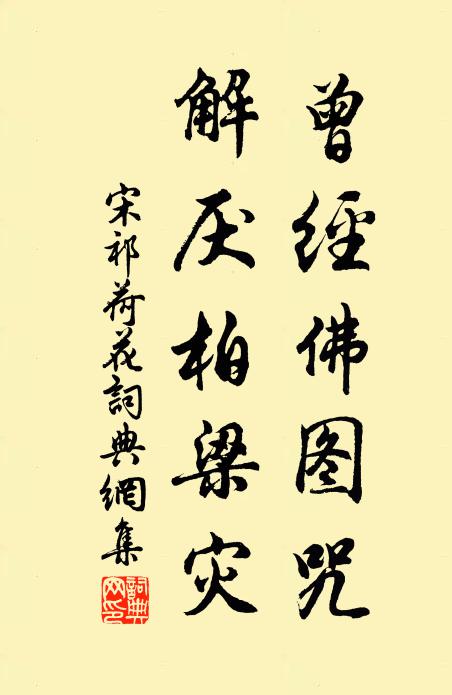 曾經佛图咒
解厌柏梁灾
宋祁荷花詞典網集
詞典网印